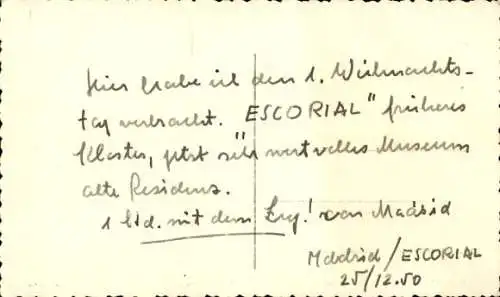 Hier habe ich den 1. Weihnachts-
tag verbracht. ESCORIAL" früheres
Kloster, jetzt sehr wertvolles Museum
alte Residenz.
1 Std. mit dem Zug! von Madrid
Madrid/ESCORIAL
25/12.50